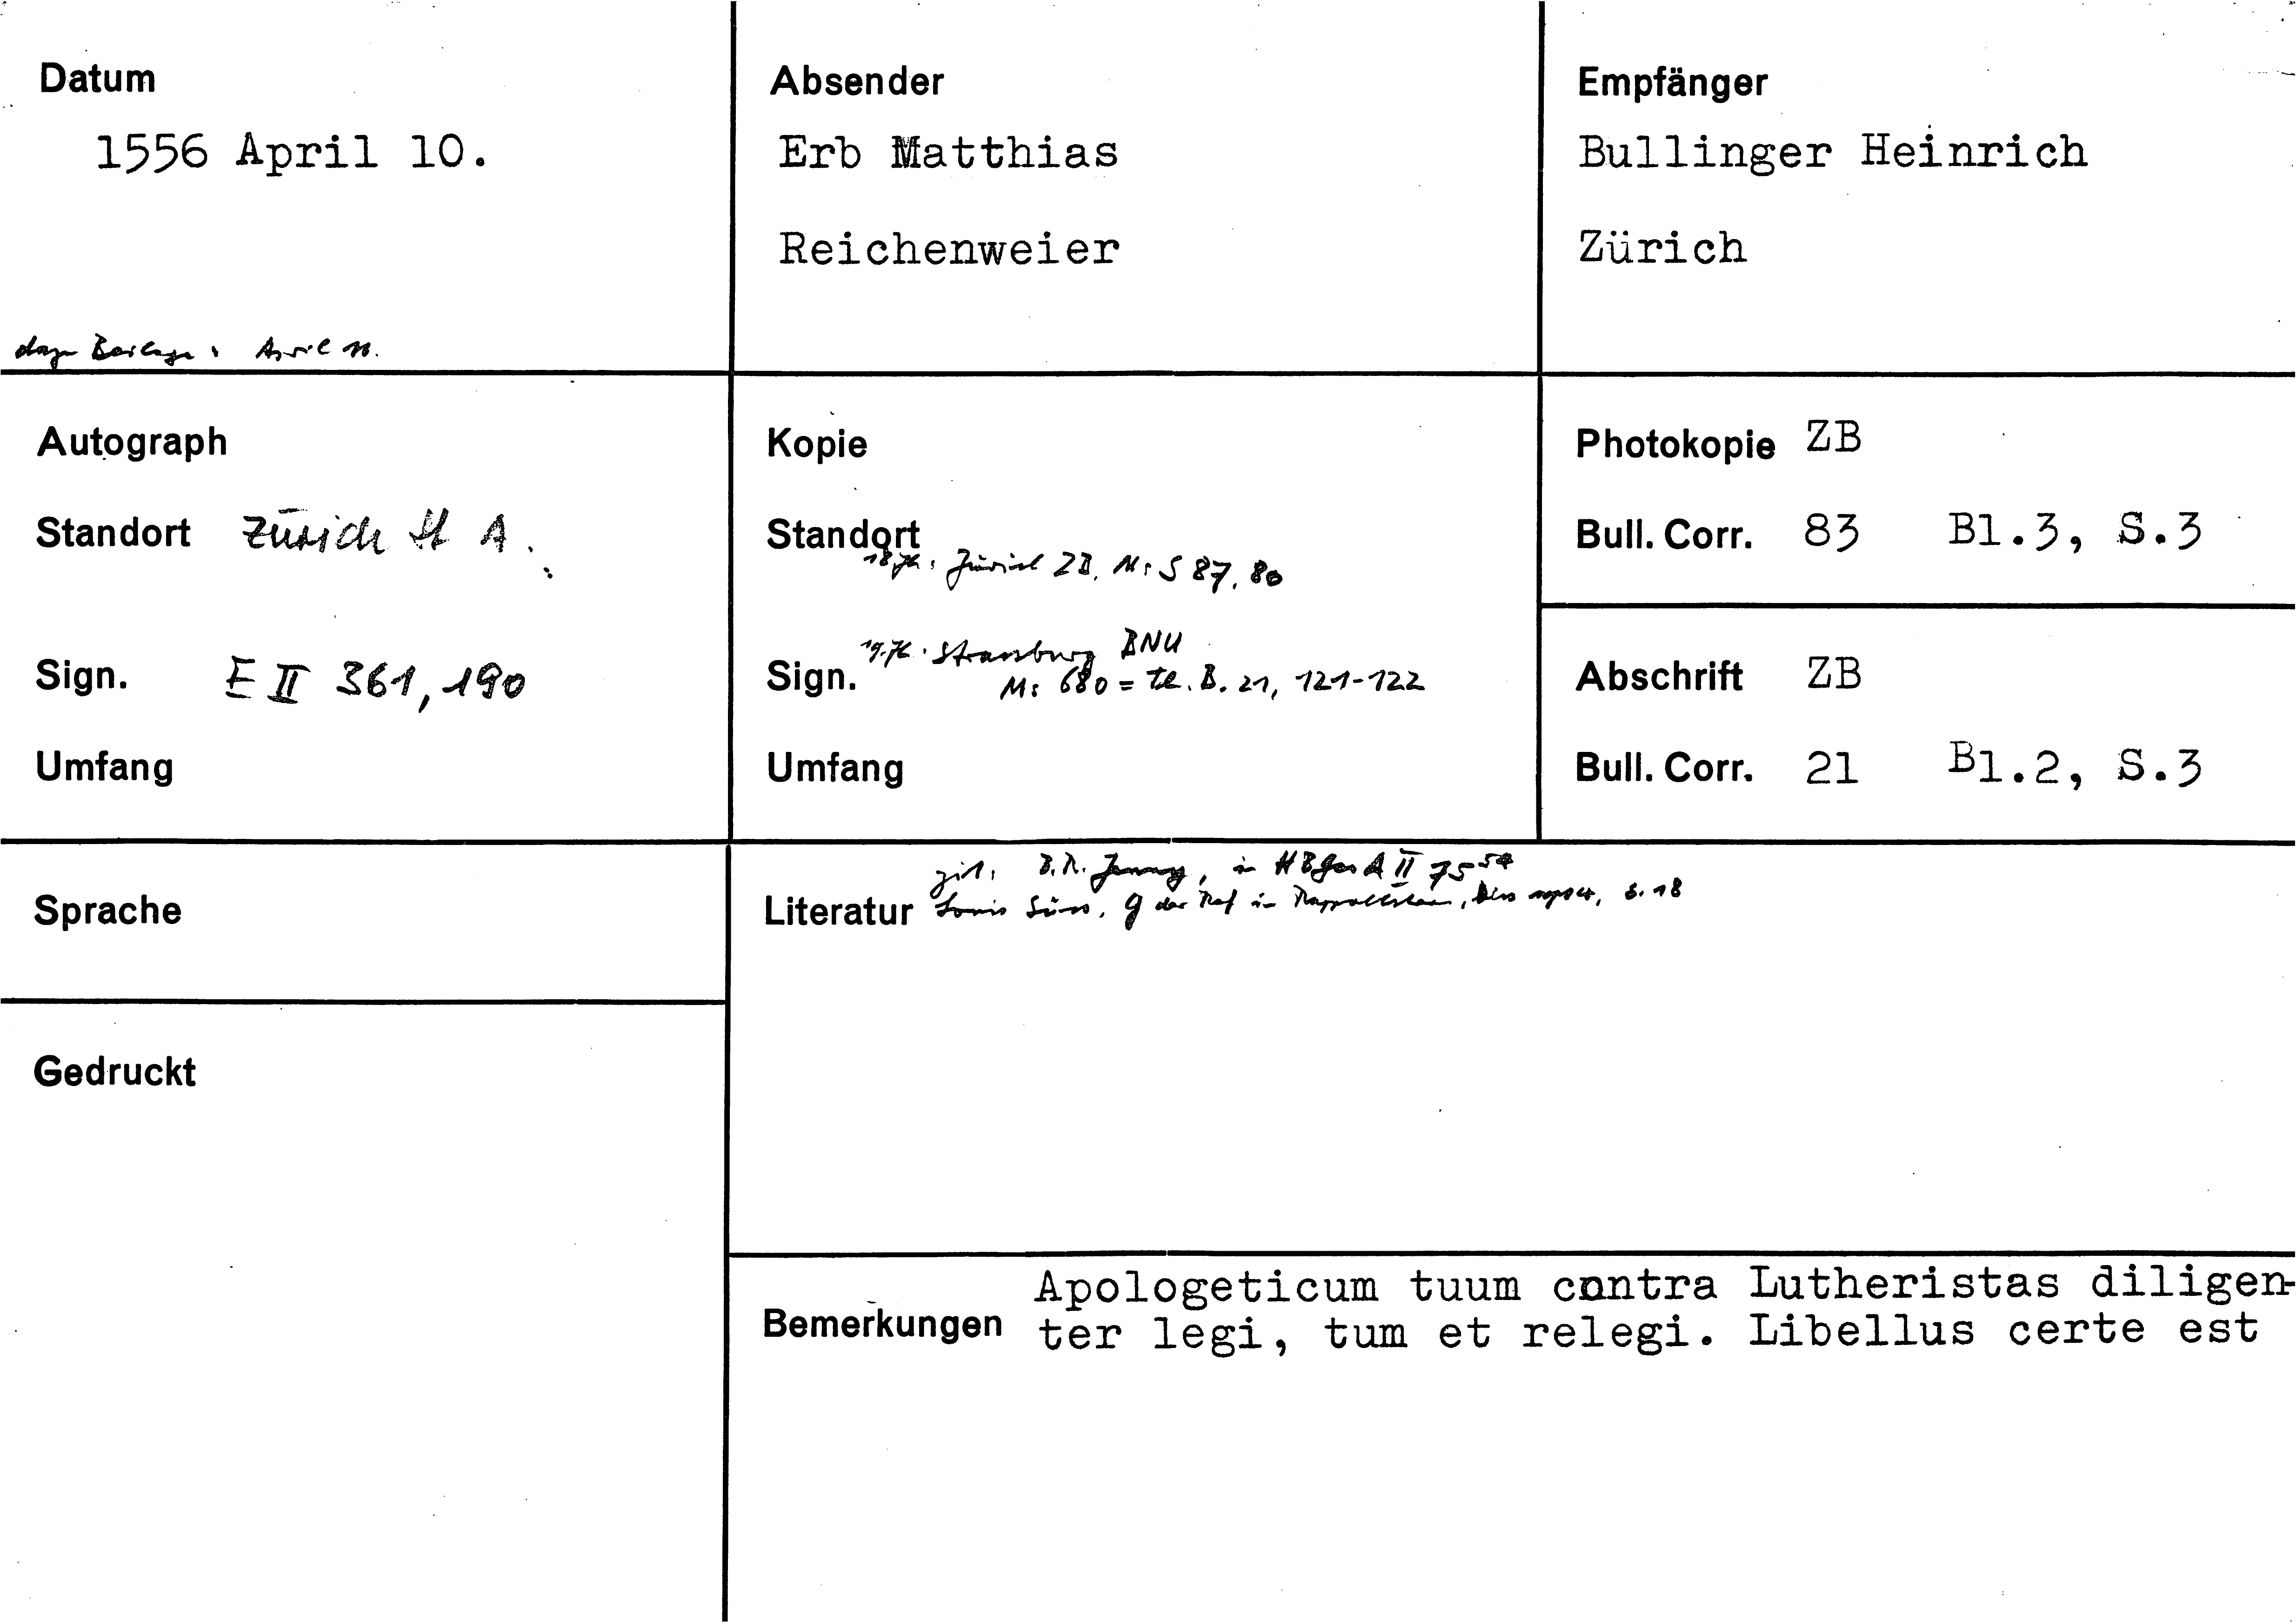 Datum
1556 April 10.
Beilage: April
Absender
Erb Matthias
Reichenweier
Empfänger
Bullinger Heinrich
Zürich
Autograph
Standort Zürich St A.
Sign. E II 361, 190
Umfang
Kopie
Standort
18. Jh. Zürich ZB, Ms S 87, 80
19. Jh. Strassburg BNU
Sign. Ms 680 = te. B. 21, 121-122
Umfang
Photokopie ZB
Bull. Corr. 83 Bl.3, S.3
Abschrift ZB
Bull. Corr. 21 Bl.2, S.3
Sprache
Gedruckt
zit. B. R. Jenny, in HBGesA II 75
Literatur Louis Süss, G der Ref in S. 18
Bemerkungen Apologeticum tuum contra Lutheristas diligen-
ter legi, tum et relegi. Libellus certe est